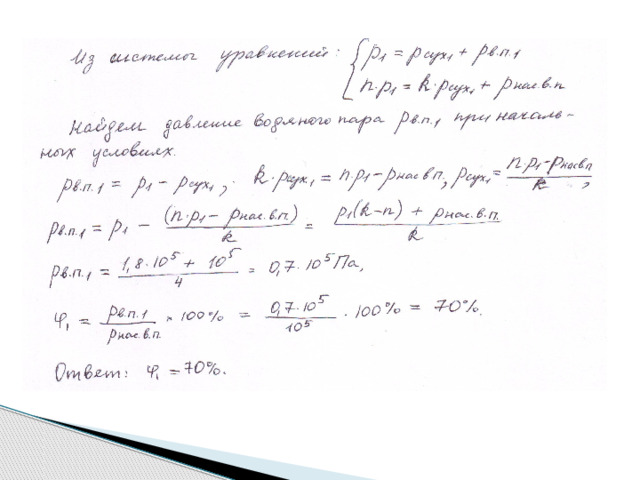 Из системы уравнений: { p₁ = pсух₁ + pв.п.1
n·p₁ = k·pсух₁ + pнас.в.п
Найдем давление водяного пара pв.п.1 при началь-
ных условиях.
pв.п.1 = p₁ - pсух₁; k·pсух₁ = n·p₁ - pнас вп, pсух₁ = (n·p₁ - pнас вп)/k,
pв.п.1 = p₁ - (n·p₁ - pнас.в.п)/k = (p₁(k-n) + pнас.в.п.)/k
pв.п.1 = (1,8·10⁵ + 10⁵)/4 = 0,7·10⁵ Па,
φ₁ = pв.п.1/pнас.в.п. × 100% = 0,7·10⁵/10⁵ · 100% = 70%.
Ответ: φ₁ = 70%.